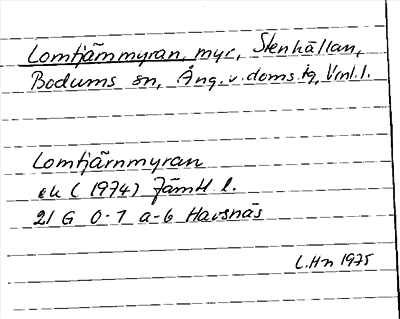 Lomtjärnmyran, myr, Stenhällan,
Bodums sn, Ång. v. doms. tg, Vnl. l.
Lomtjärnmyran
ek (1974) Jämtl. l.
21 G 0-1 a-b Havsnäs
L.Hn 1975